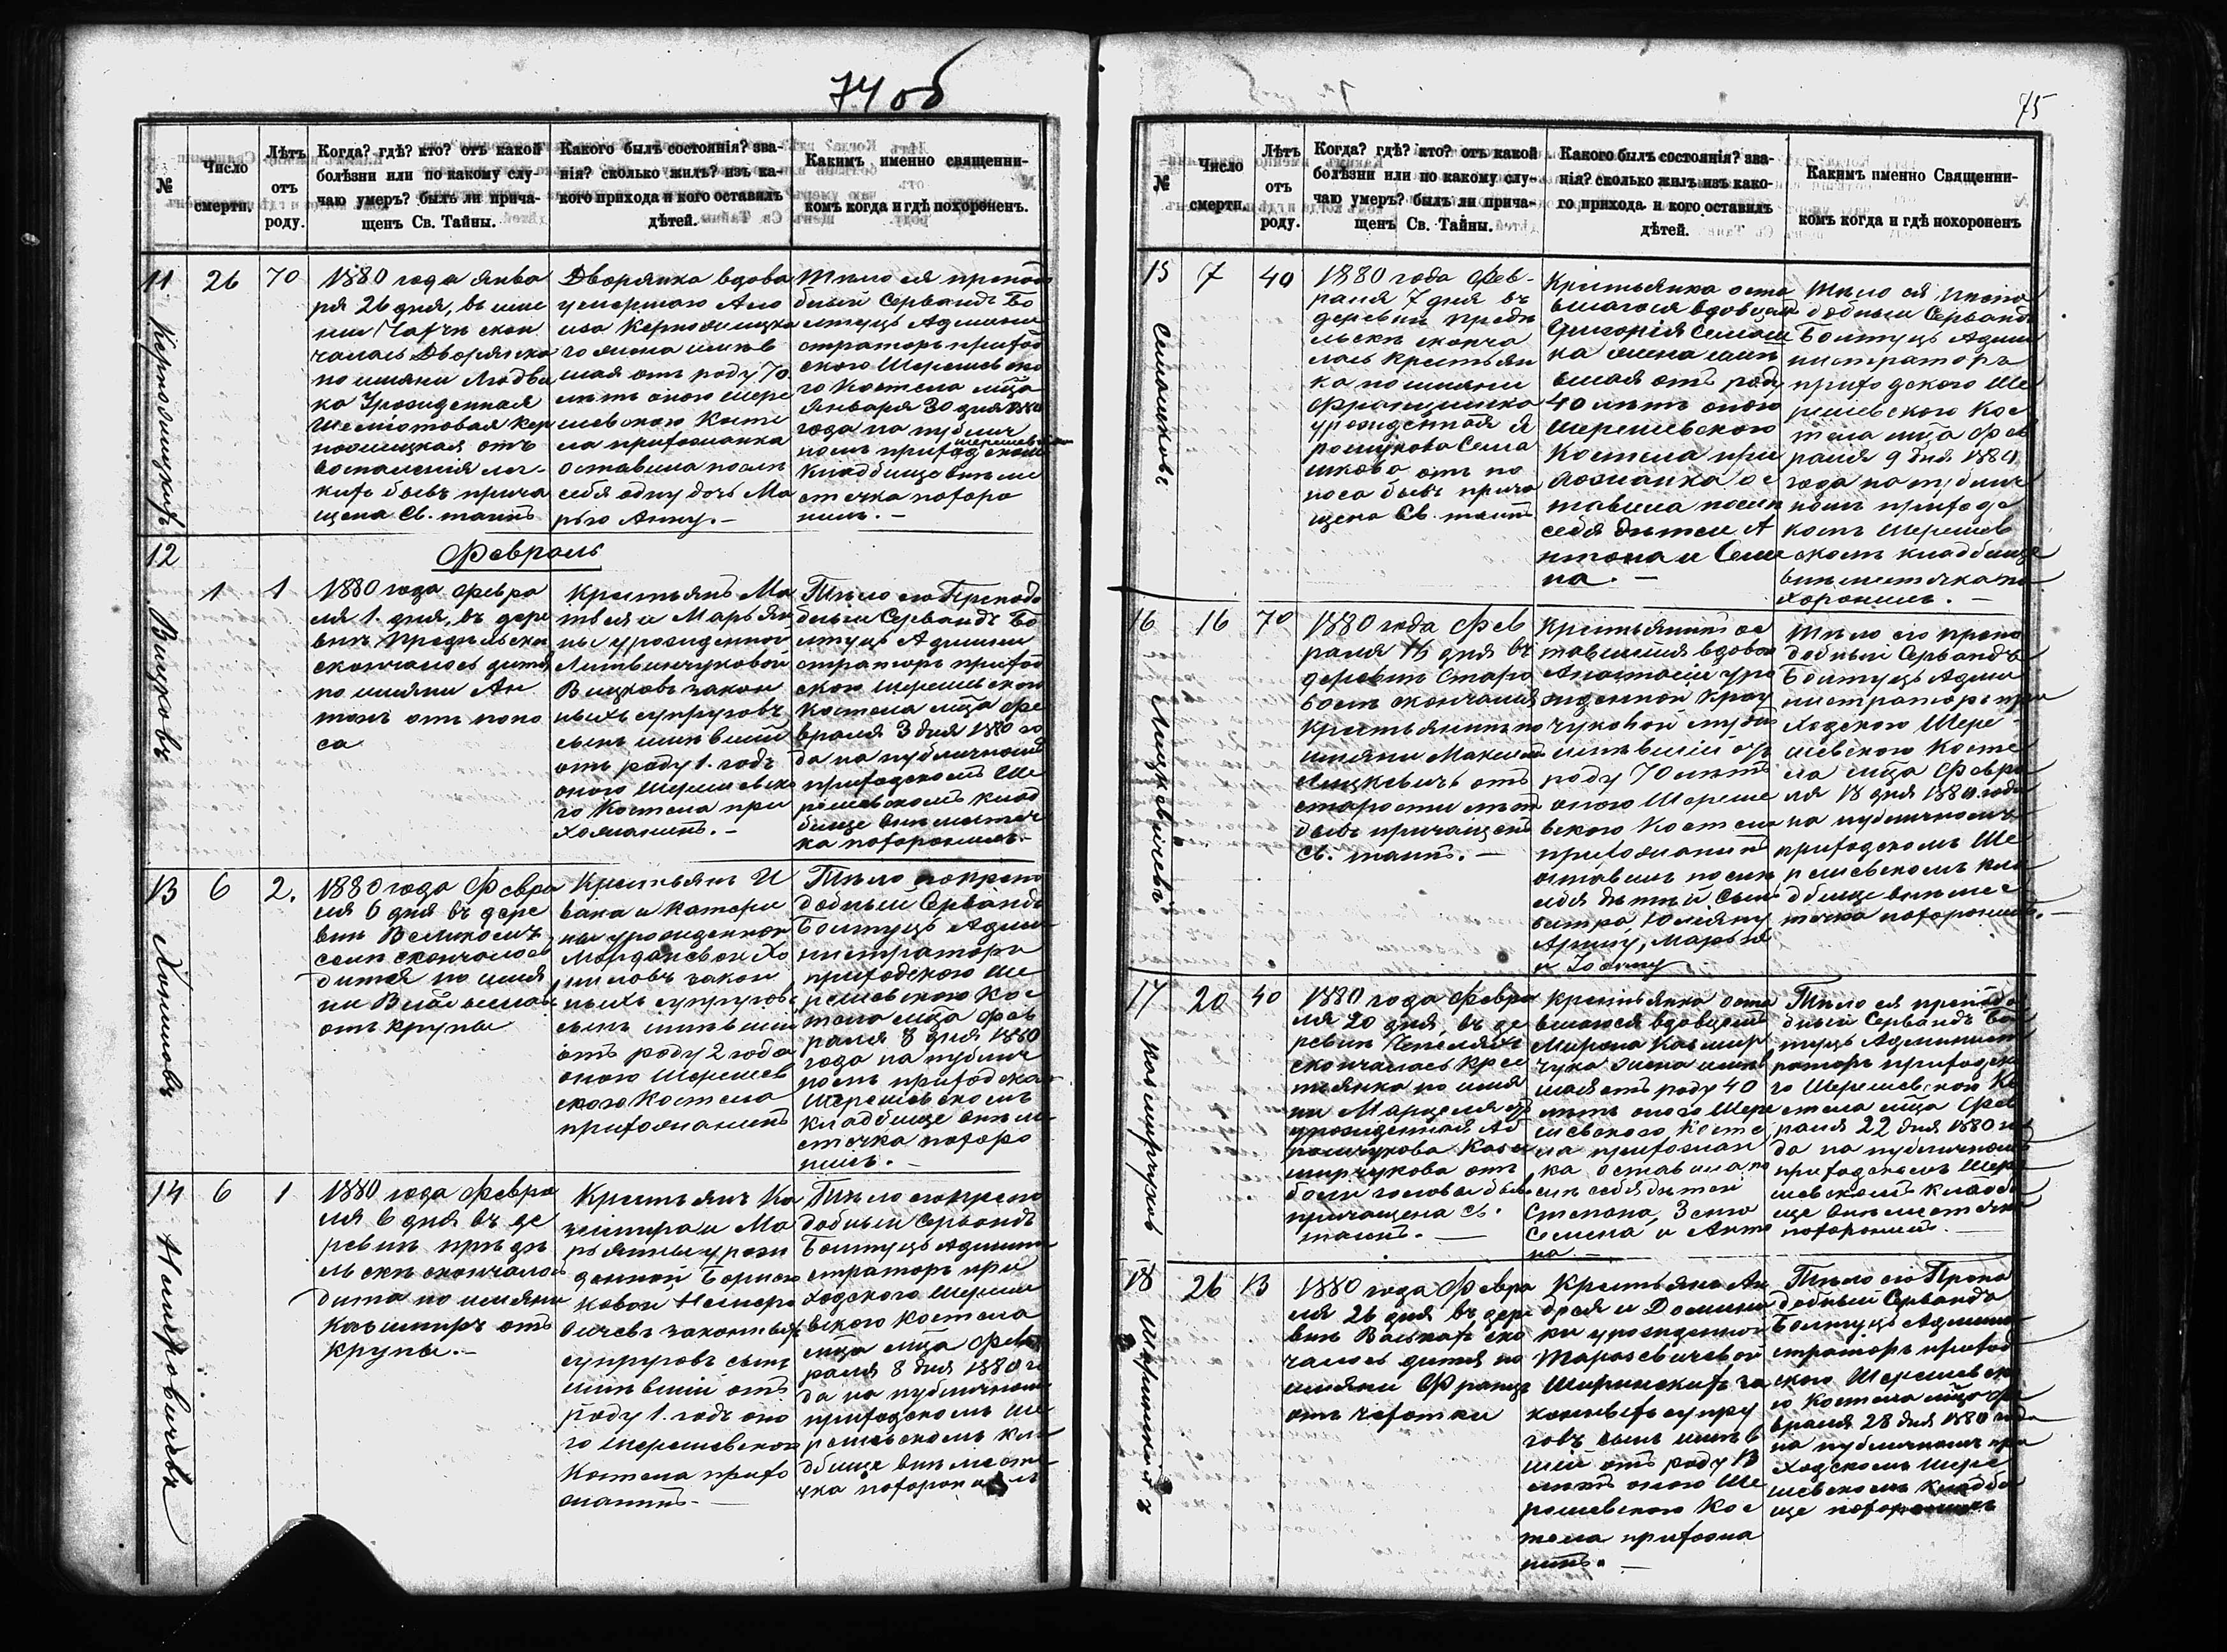 74 об
№
Число
смерти.
Лѣтъ
отъ
роду.
Когда? гдѣ? кто? отъ какой
болѣзни или по какому слу-
чаю умеръ? былъ ли прича-
щенъ Св. Тайны.
Какого былъ состоянія? зва-
нія? сколько жилъ? изъ ка-
кого прихода и кого оставилъ
дѣтей.
Какимъ именно священни-
комъ когда и гдѣ похороненъ.
11
26
70
1880 года янва
ря 26 дня, въ име
нии скон
чалась Дворянка
по имяни Людви
ка Урожденная
отъ
воспаленія лег-
кихъ бывъ прича
щена Св. таинъ
Дворянка вдова
умершаго Ало
иза
го жена жив
шая отъ роду 70
лѣтъ оного Шере
шевского Косте
ла прихожанка
оставила послѣ
себя одну дочь Ма
рью Анну. -
Тѣло ея препо
бный Сервандъ Бо
лтуць Админи
страторъ приход
ского Шерешевско
го Костела мца
Января 30 дня 1880
года на публич
номъ приходскомъ
шерешевском
кладбище внѣ ме
стечка похоро
нилъ. -
12
Февраль
Вицковъ
1
1
1880 года февра
ля 1 дня, въ дере
внѣ Предѣльски
скончалось дитя
по имяни Ан
тонъ отъ поно
са
Крестьянъ Ма
твея и Марьян
ны урожденной
Литвинчуковой
Вицковъ закон
ныхъ супруговъ
сынъ жившій
отъ роду 1 годъ
оного Шерешевско
го Костела при
хожанинъ. -
Тѣло его Преподо
бный Сервандъ Бо
лтуць Админи
страторъ приход
ского Шерешевского
Костела мца Фе
враля 3 дня 1880 го
да на публичномъ
приходскомъ Ше
решевскомъ клад
бище внѣ местеч
ка похоронилъ. -
13
Хомиковъ
6
2.
1880 года Февра
ля 6 дня въ дере
внѣ Великомъ
селѣ скончалось
дитя по имя
ни
отъ крупы
Крестьянъ И
вана и Катери
ны урожденной
Хо
миковъ закон
ныхъ супруговъ
сынъ жившій
отъ роду 2 года
оного Шерешев
ского Костела
прихожанинъ
Тѣло его препо
добный Сервандъ
Болтуць Адми
нистраторъ
приходского Ше
решевского Кос
тела мца Фев
раля 8 дня 1880
года на публич
номъ приходском
Шерешевскомъ
кладбище внѣ ме
стечка похоро
нилъ. -
14
Немировичевъ
6
1
1880 года Февра
ля 6 дня въ де
ревнѣ предѣ
льскѣ скончалось
дитя по имяни
Казимиръ отъ
крупы. -
Крестьянъ Ка
зимира и Ма
рьянны урож
денной
ковой Немиро
вичевъ законныхъ
супруговъ сынъ
жившій отъ
роду 1 годъ оно
го Шерешевского
Костела прихо
жанинъ. -
Тѣло его препо
добный Сервандъ
Болтуць Админи
страторъ при
ходского Шереше
вского Костела
мца мца Фев
раля 8 дня 1880 го
да на публичномъ
приходскомъ Ше
решевскомъ кла
дбище внѣ месте
чка похоронилъ
75
№
Число
смерти.
Лѣтъ
отъ
роду.
Когда? гдѣ? кто? отъ какой
болѣзни или по какому слу-
чаю умеръ? былъ ли прича-
щенъ Св. Тайны.
Какого былъ состоянія? зва-
нія? сколько жилъ изъ како-
го прихода и кого оставилъ
дѣтей.
Какимъ именно Священни-
комъ когда и гдѣ похороненъ
15
Семашковъ
7
40
1880 года Фев-
раля 7 дня въ
деревнѣ предѣ
льскѣ сконча
лась крестьян
ка по имяни
Францишка
урожденная Я
рошукова Сема
шкова отъ по
носа бывъ прича
щена Св. таинъ
Крестьянка оста
вшагося вдовцемъ
Григорія Семаш
ка жена жив
шая отъ роду
40 лѣтъ оного
Шерешевского
Костела при
хожанка ос
тавила послѣ
себя дѣтей А
нтона и Семе
на. -
Тѣло ея препо
добный Сервандъ
Болтуць Адми
нистраторъ
приходского Ше
решевского Кос
тела мца Фев
раля 9 дня 1880
года на публич
номъ приходс
комъ Шерешев
скомъ кладбище
внѣ местечка по
хоронилъ. -
16
Мицкевичевъ
16
70
1880 года Фев
раля 16 дня въ
деревнѣ Старо
скончался
Крестьянинъ по
имяни Максим
Мицкевичъ отъ
старости лѣтъ
бывъ причащенъ
Св. таинъ. -
Крестьянинъ ос
тавшійся вдовой
Анастасіи уро
жденной Крав
чуковой мужъ
жившій отъ
роду 70 лѣтъ
оного Шереше
вского Костела
прихожанинъ
оставилъ послѣ
себя дѣтей Силь
вестра, Юліяну
Арину, Марью
и Іоанну
Тѣло его препо
добный Сервандъ
Болтуць Адми
нистраторъ при
ходского Шере
шевского Косте
ла мца Февра
ля 18 дня 1880 года
на публичномъ
приходскомъ Ше
решевскомъ кла
дбище внѣ мес
течка похоронилъ. -
17
Казимирчуковъ
20
40
1880 года Февра
ля 20 дня, въ де
ревнѣ
скончалась крес
тьянка по имя
ни
урожденная Аб
рамчукова Кази
мирчукова отъ
боли головы бывъ
причащена Св.
таинъ. -
Крестьянка оста
вшагося вдовцемъ
Мирона Казимир
чука жена жив
шая отъ роду 40
лѣтъ оного Шере
шевского Косте
ла прихожан
ка оставила по
слѣ себя дѣтей
Степана,
Семена и Анто
на -
Тѣло ея преподо
бный Сервандъ Бол
туць Админист
раторъ приходско
го Шерешевского Ко
стела мца Фев
раля 22 дня 1880 го
да на публичномъ
приходскомъ Шере
шевскомъ кладби
ще внѣ местечка
похоронилъ. -
18
Ширинскихъ
26
13
1880 года Февра
ля 26 дня въ дере
внѣ Васькахъ ско
чалось дитя по
имяни Францъ
отъ чахотки
Крестьянъ Ан
дрея и Домини
ки урожденной
Тарасевичевой
Ширинскихъ за
конныхъ супру
говъ сынъ жив
шій отъ роду 13
лѣтъ оного Ше
решевского Кос
тела прихожа
нинъ. -
Тѣло его Препо
добный Сервандъ
Болтуць Админи
страторъ приход
ского Шерешевско
го Костела мца Фе
враля 28 дня 1880 года
на публичномъ при
ходскомъ Шере
шевскомъ кладби
ще похоронилъ